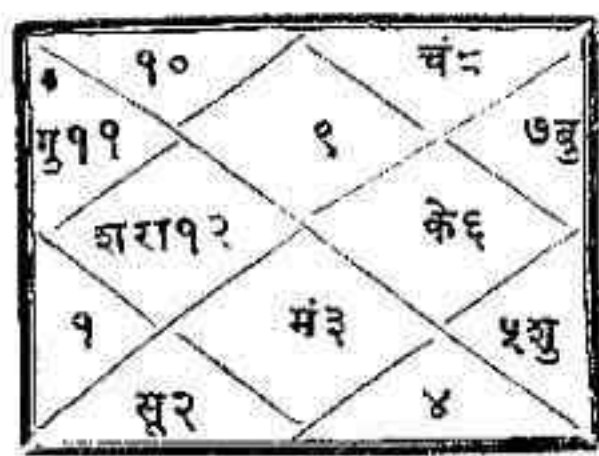 १० चं८
गु११ ९ ७बु
शरा१२ के६
१ मं३ ५शु
सू२ ४